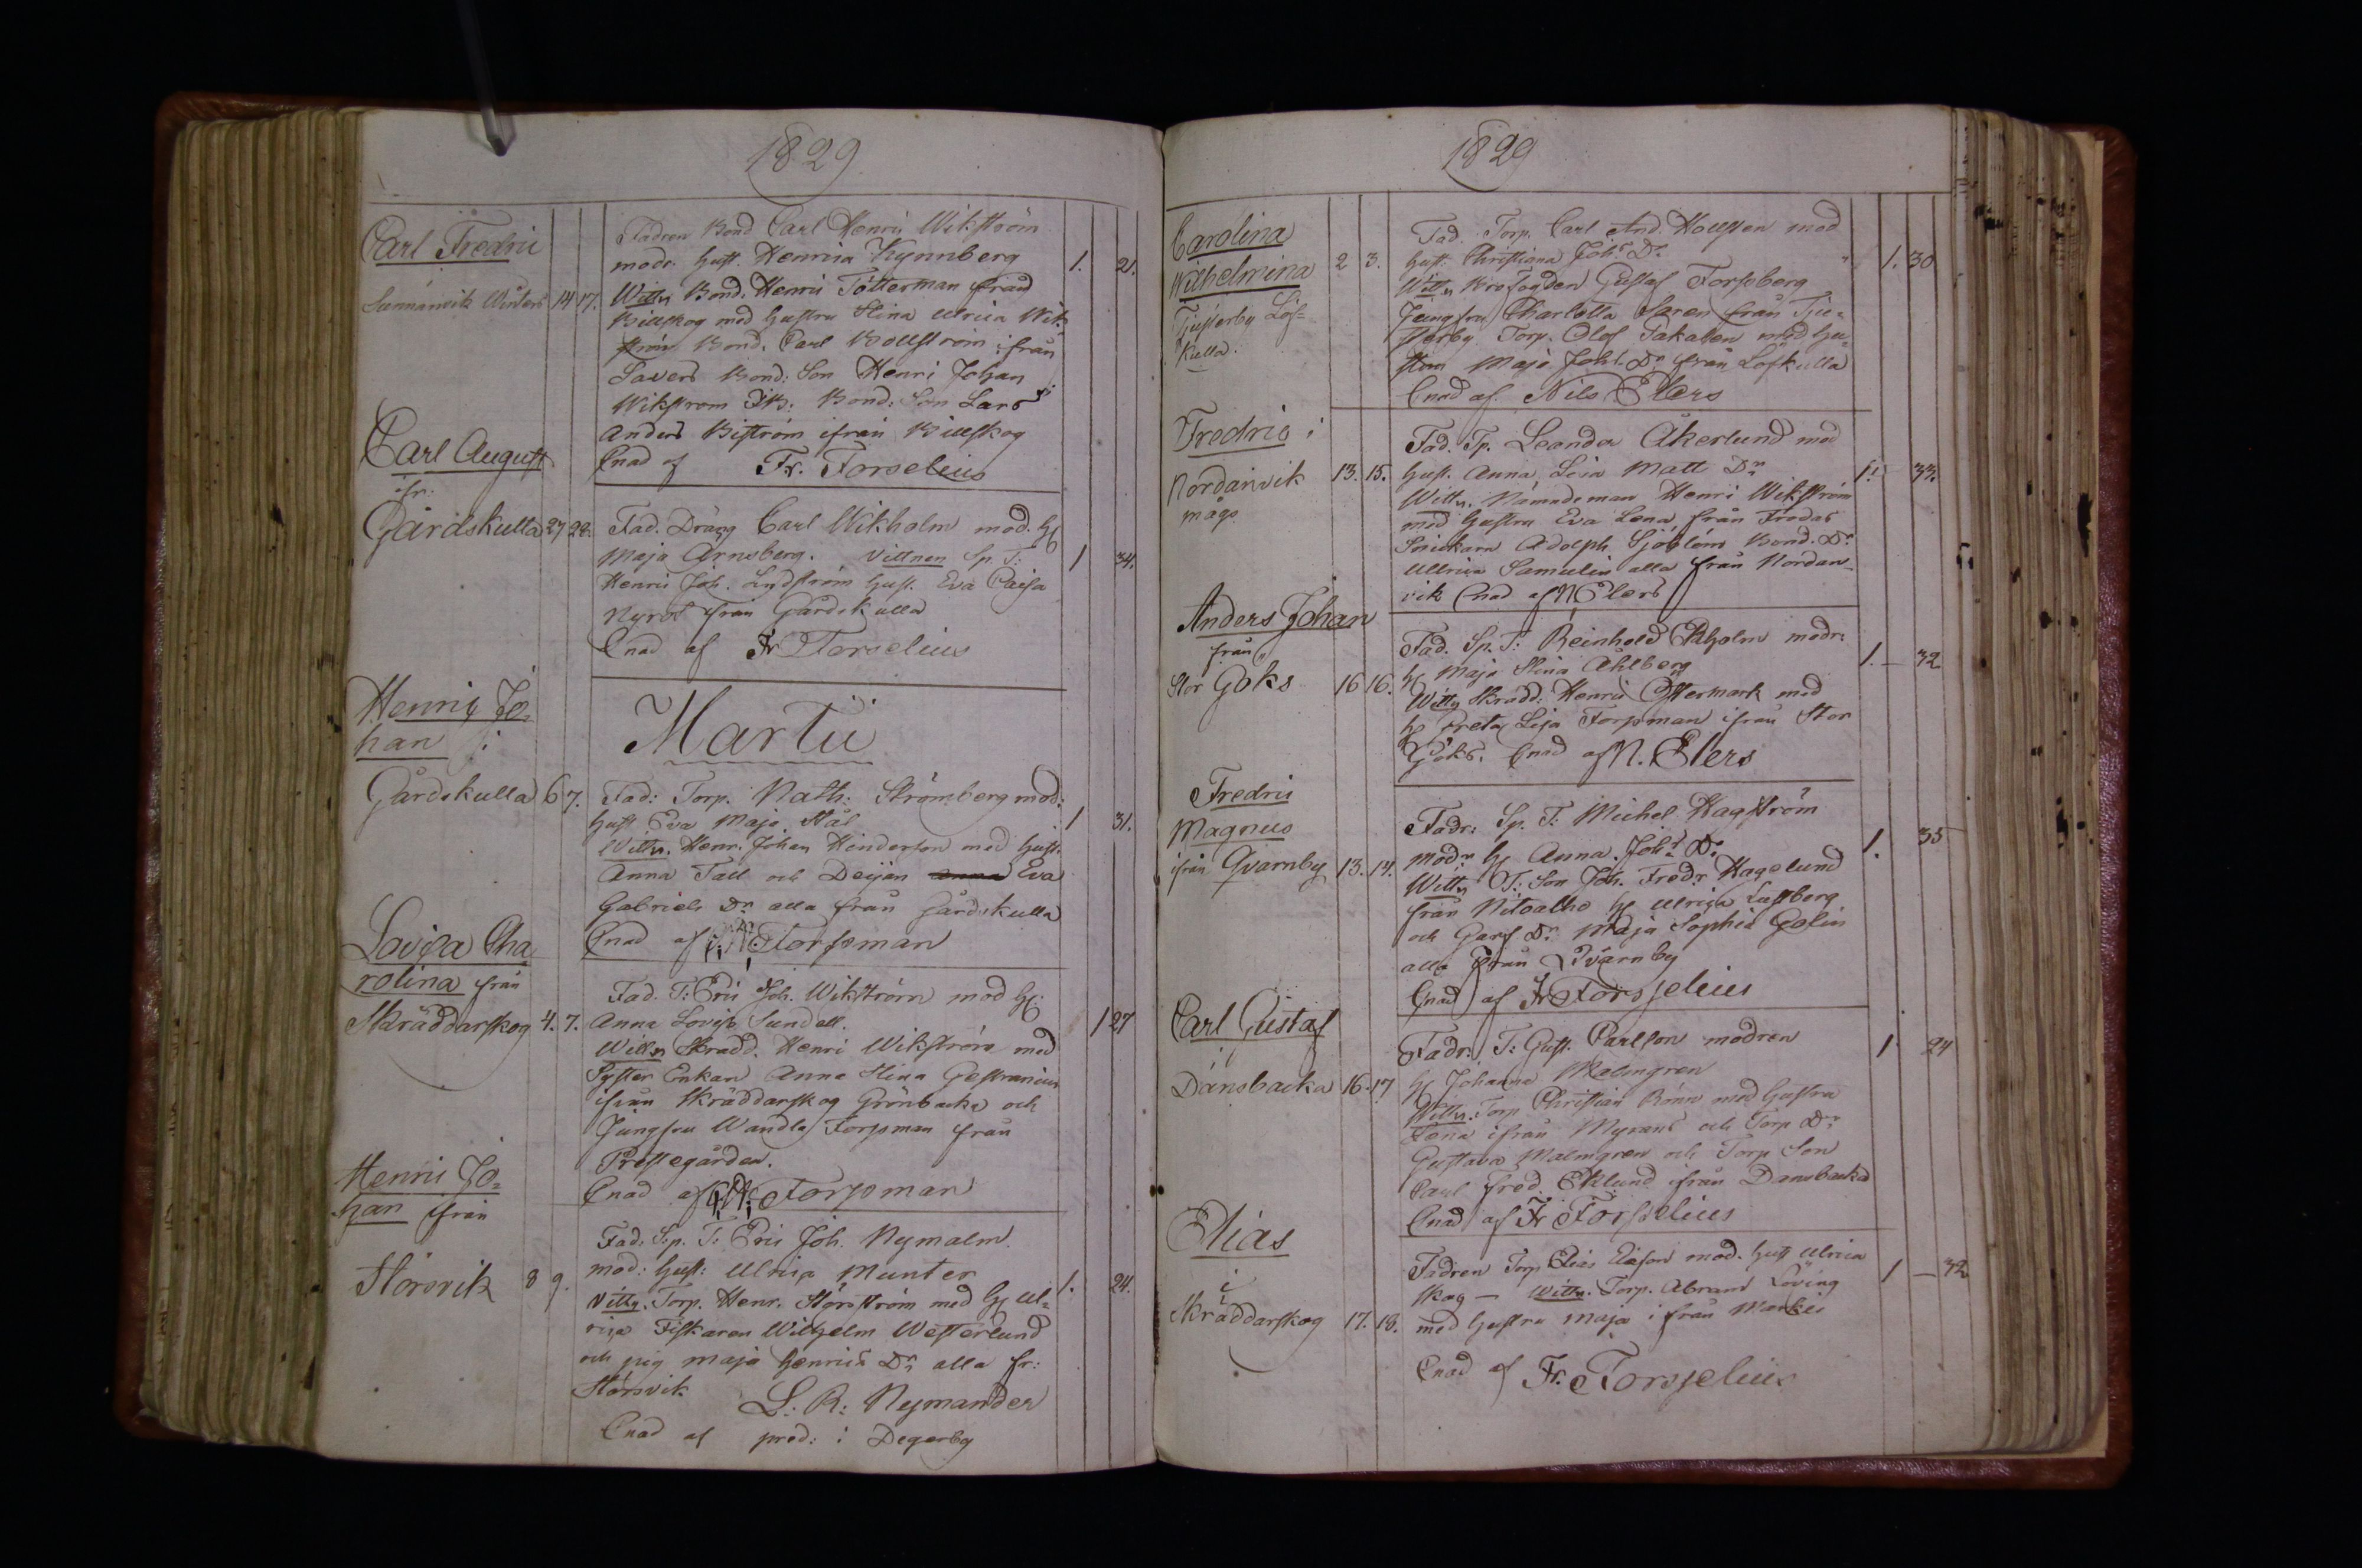 1829
Carl Fredric
Sunnanvik Winters 14 17.
Fadren Bond Carl Henric Wikström
modr. hust. Henrica Kynnberg 1. 21.
Wittn Bond. Henric Tötterman från
Billskog med hustru Stina Ulrica Wik-
ström Bond. Carl Bollström från
Savers Bond: Son Henri Johan
Wikstrom Bond: Son Lars
Anders Biström ifrån Billskog
Cnad af Fr. Forselius
Carl August
ifr:
Gårdskulla 27 28.
Fad. Dräng Carl Wikholm mod. H
Maja Arnsberg. Vittnen Sp. T: 1 34.
Henric Joh. Lydström hust. Eva Caisa
Nyrot från Gårdskulla
Cnad af Fr Forselius
Martii
Henrig Jo-
han i
Gårdskulla 6 7.
Fad: Torp. Math: Strömberg mod:
hust Eva Maja Stål 1 31.
Wittn. Henr. Johan Hinderson med hust.
Anna Tall och Deijan Eva
Gabriels Dr alla från Gårdskulla
Cnad af Forssman
Lovisa Cha
rolina från
Skräddarskog 4. 7.
Fad. T: Eric Joh. Wikström mod H
Anna Lovisa Sundell. 1 27
Wittn Skradd. Henri Wikström med
Syster Enkan Anna Stina Gestranius
ifrån Skräddarskog Grönbacka och
Jungfru Wandla Forssman från
Prestegården.
Cnad af Forssman
Henric Jo-
han ifrån
Störsvik 8 9.
Fad: Sp. T: Eric Joh. Nymalm
mod: hust: Ulrica Munter 1. 24.
Vittn. Torp. Henr. Störsström med H Ul-
rica Fiskaren Wilhelm Westerlund
och pig Maja Henrics Dr alla fr:
Störsvik L. R: Nymander
Cnad af pred: i Degerby
1829
Carolina
Wilhelmina 2 3.
Tjusterby Löf-
kulla.
Fad. Torp. Carl And. Hollsten mod
hust: Christiana Johs Dr 1. 30
Wittn Krofogden Gustaf Forssberg
Jungfru Charlotta Saren från Tju-
sterby Torp. Olof Takalen med hu-
strun Maja Johs. Dr från Löfkulla
Cnad af Nils Elers
Fredric i
Nordanvik 13. 15.
mågs
Fad. Tp. Leander Åkerlund mod
hust. Anna Lisa Matt Dr 1. 33.
Wittn. Nämndeman Henri Wikström
med hustru Eva Lena från Frodas
Snickarn Adolph Sjöblom Bond. Dr
Ullrica Samulin alla från Nordan-
vik Cnad af N Elers
Anders Johan
från
Stor Göks 16 16.
Fad. Sp. T: Reinhold Ekholm modr:
H Maja Stina Ahlberg 1. 32
Wittn Skradd. Henric Östermark med
H Greta Lisa Forssman ifrån Stor
Göks. Cnad af N. Elers
Fredric
Magnus
ifrån Qvarnby 13. 14.
Fadr: Sp. T: Michel Hagström
Modr H Anna Johs Dr 1. 35
Wittn T: Son Joh. Fredr Hagelund
från H Ulrica Luftberg
och Garf Dr Maja Sophia Golin
alla från Qvarnby
Cnad af Fr Forsselius
Carl Gustaf
i
Dansbacka 16. 17
Fadr: T: Gust. Carlson modren 1 24
H Johanna Malmgren
Wittn. Torp Christian Rönn med hustru
Lena ifrån Myrans och Torp Dr
Gustava Malmgren och Torp Son
Carl Fred. Eklund ifrån Dansbacka
Cnad af Fr Forsselius
Elias
i
Skräddarskog 17. 18.
Fadren Torp Elias Eliæson mod. hust Ulrica 1 — 32
Skog — Wittn. Torp. Abram Löving
med hustru Maja ifrån Markis
Cnad af Fr. Forsselius